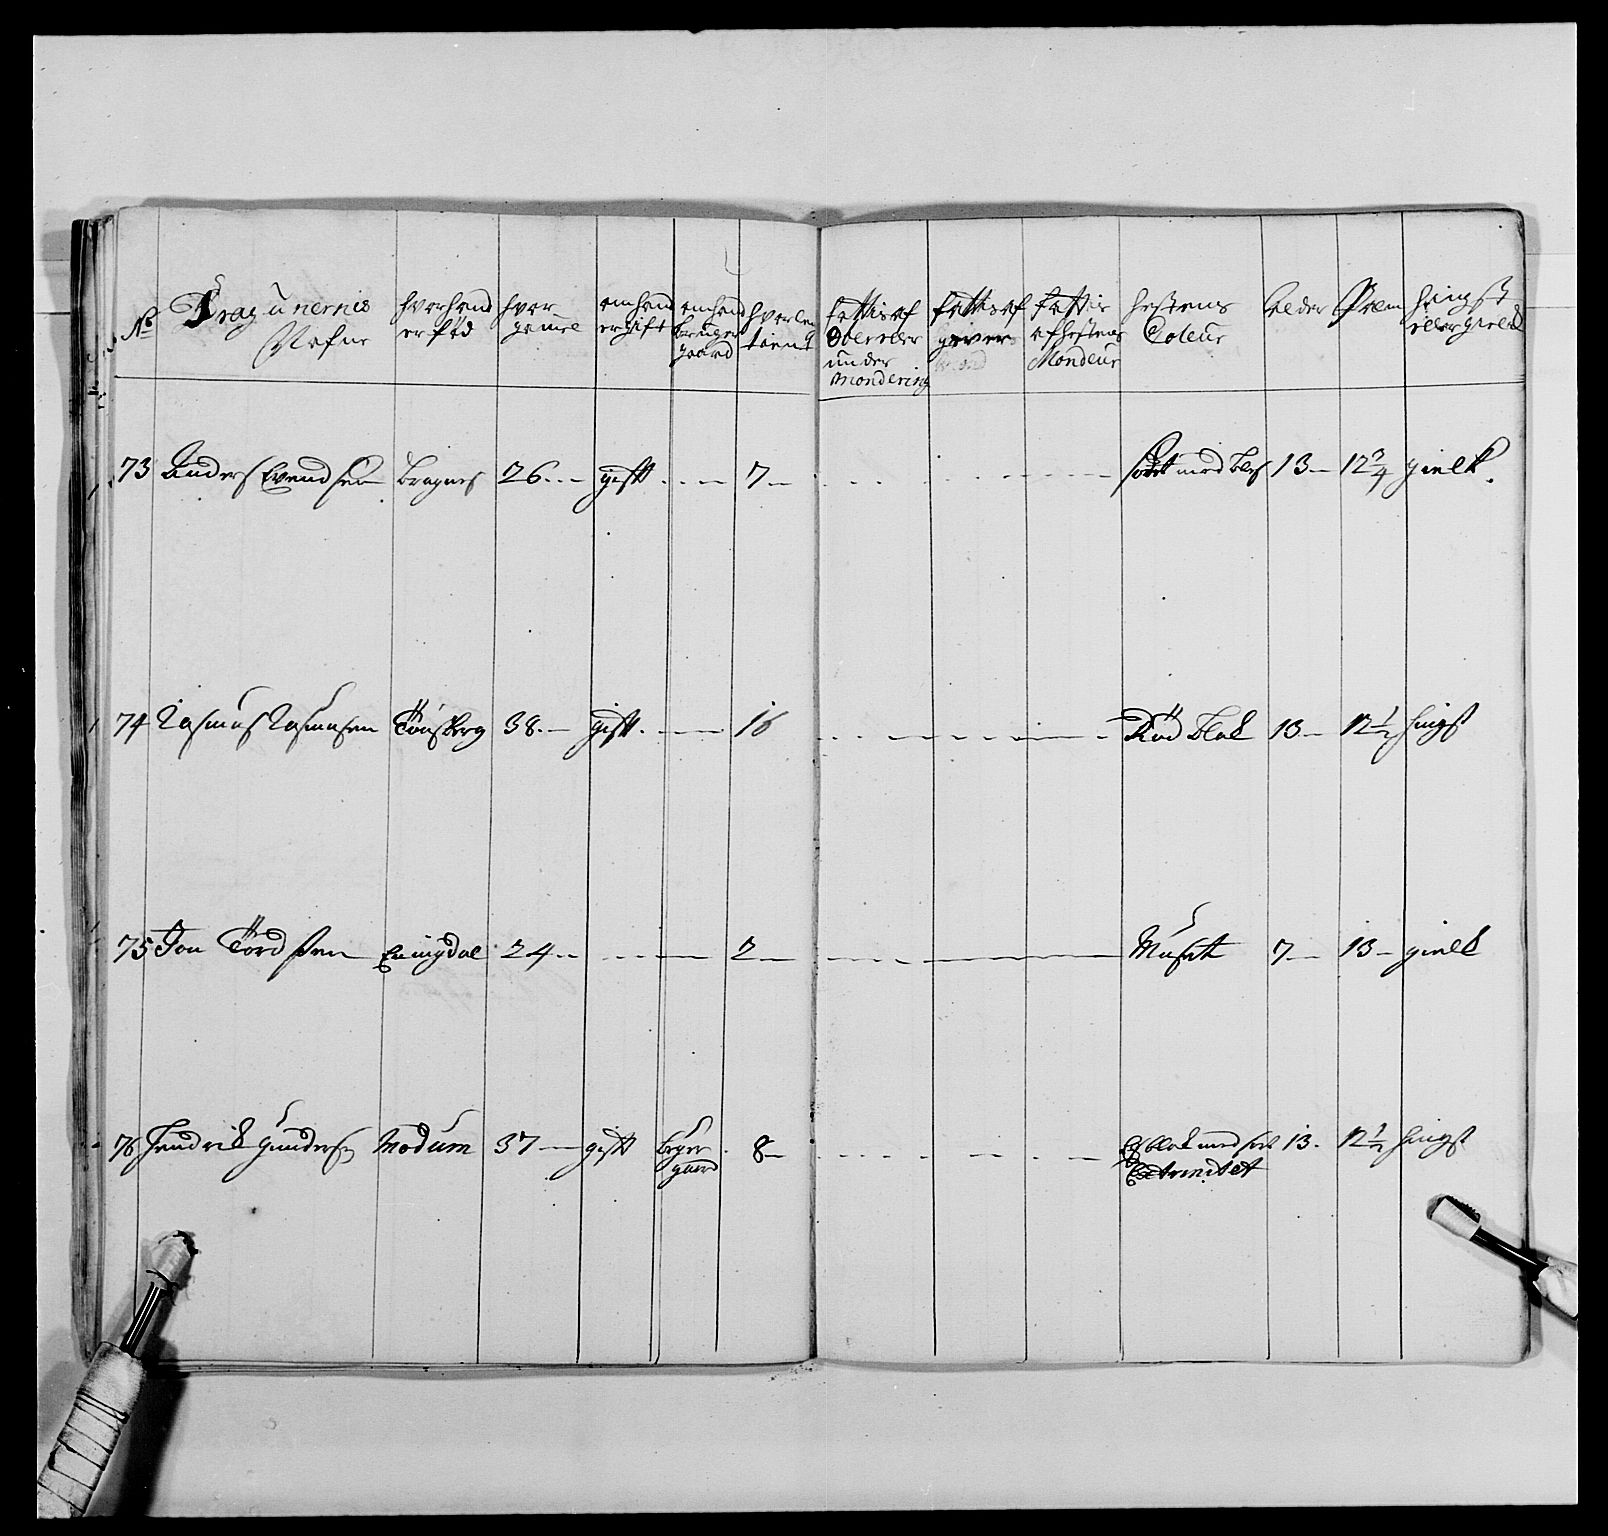 No Dragunernis Nafne hvor hand er föd hvor gamel om hand er gift om hand bruger gaard hvorlenge tient fattis af Over eller under Mondering fattis af gever fattis af hestens Mondeur hestens Coleur Alder Palm hingst eller gield
73 Anders Evendsen bragnes 26 gift 7 sort med bles 13 12 3/4 gield
74 Rasmus Rasmusen Tönsberg 38 gift 16 Röd blak 13 12 1/2 hingst
75 Jon Tordsen Eningdal 24 2 Muset 7 13 gield
76 Hendrik Gunders Modum 37 gift bruger gaard 8 blak med sort Extremitet 13 12 1/2 hingst